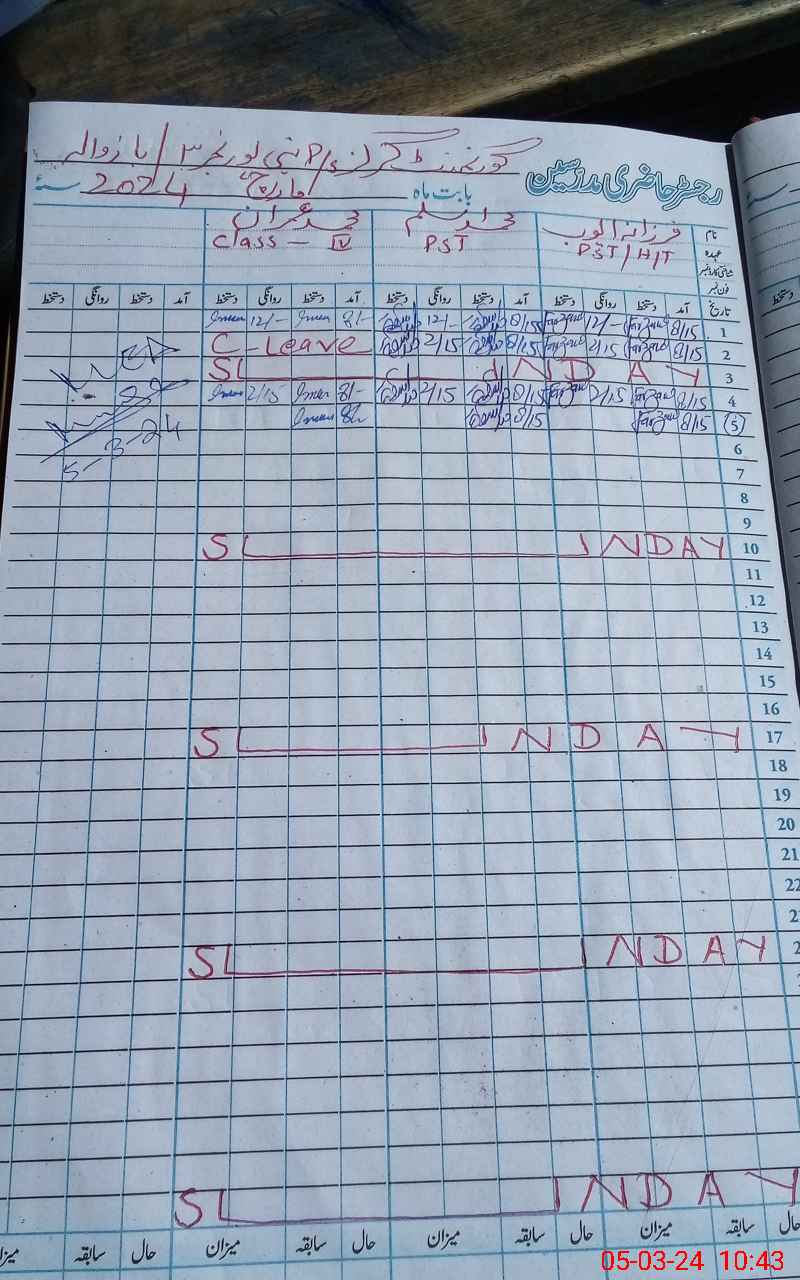 رجسٹر حاضری مدرسین
گورنمنٹ گرلز P/S نمبر ۳
بابت ماہ مارچ 2024 سنہ
نام فرزانہ ایوب محمد اسلم محمد عمران
عہدہ PST/H/T PST Class - IV
شناختی کارڈ نمبر
فون نمبر
تاریخ آمد دستخط روانگی دستخط آمد دستخط روانگی دستخط آمد دستخط روانگی دستخط آمد دستخط روانگی دستخط
1 8/15 Farzana 12/- Farzana 8/15 12/- 8/- Imran 12/- Imran
2 8/15 Farzana 2/15 Farzana 8/15 2/15 C-Leave
3 SUNDAY
4 8/15 Farzana 2/15 Farzana 8/15 2/15 8/- Imran 2/15 Imran
5 8/15 Farzana 8/15 Imran
5-3-24
6
7
8
9
10 SUNDAY
11
12
13
14
15
16
17 SUNDAY
18
19
20
21
22
2
2 SUNDAY
SUNDAY
حال سابقہ میزان حال سابقہ میزان حال سابقہ میزان حال سابقہ میزان
05-03-24 10:43